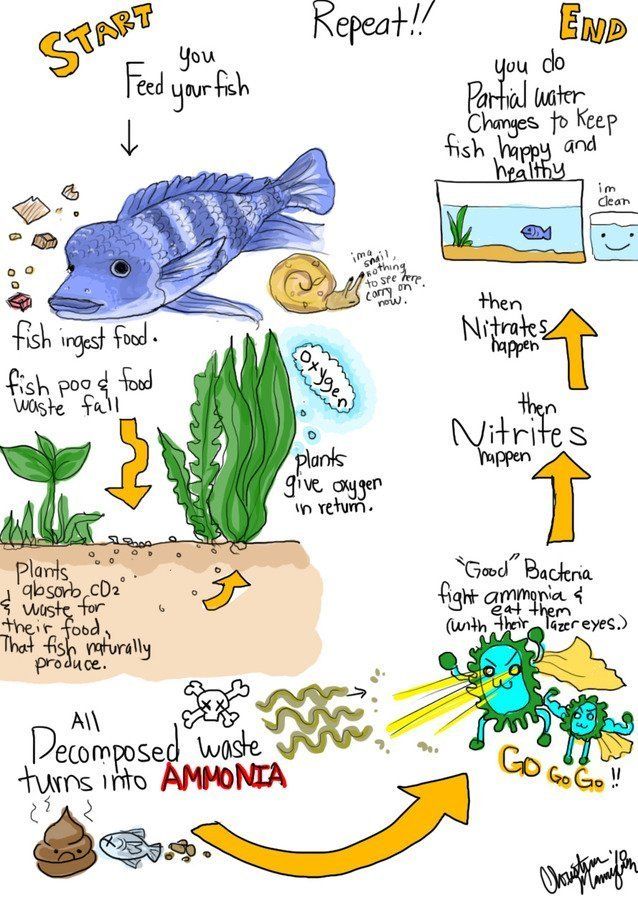 START
Repeat!!
END
you
Feed your fish
fish ingest food.
im a
snail,
nothing
to see here.
carry on
now.
fish poo & food
waste fall
Oxygen
plants
give oxygen
in return.
Plants
absorb CO2
& waste for
their food,
That fish naturally
produce.
All
Decomposed waste
turns into AMMONIA
"Good" Bacteria
fight ammonia &
eat them
(with their lazer eyes.)
GO GO GO!!
then
Nitrites
happen
then
Nitrates
happen
you do
Partial water
Changes to Keep
fish happy and
healthy
im
clean